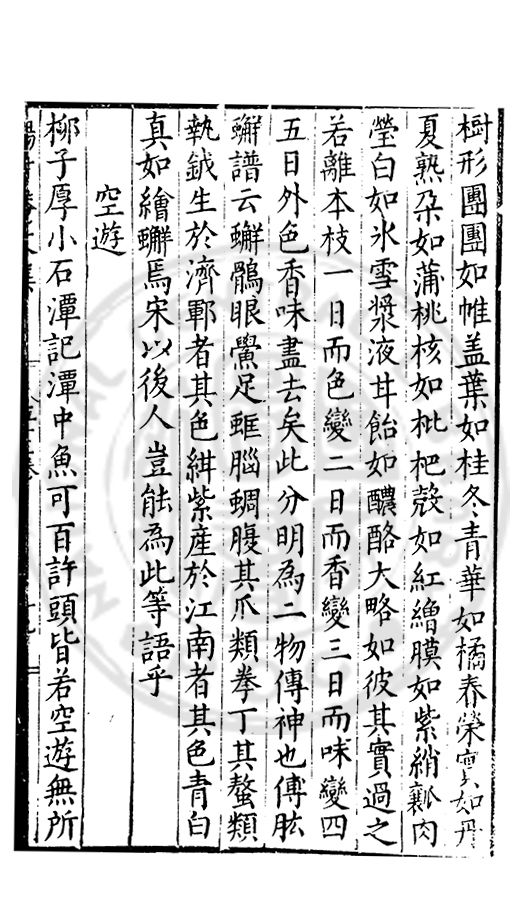 樹形團團如帷盖葉如桂冬青華如橘春榮實如丹
夏熟朶如蒲桃核如枇杷殻如紅繒膜如紫綃瓤肉
瑩白如氷雪漿液甘飴如醲酪大略如彼其實過之
若離本枝一日而色變二日而香變三日而味變四
五日外色香味盡去矣此分明為二物傳神也傅肱
蠏譜云蠏鶻眼鱟足䖶腦蜩腹其爪類拳丁其螯類
執鉞生於濟鄆者其色紺紫産於江南者其色青白
真如繪蠏焉宋以後人豈能為此等語乎
空遊
柳子厚小石潭記潭中魚可百許頭皆若空遊無所